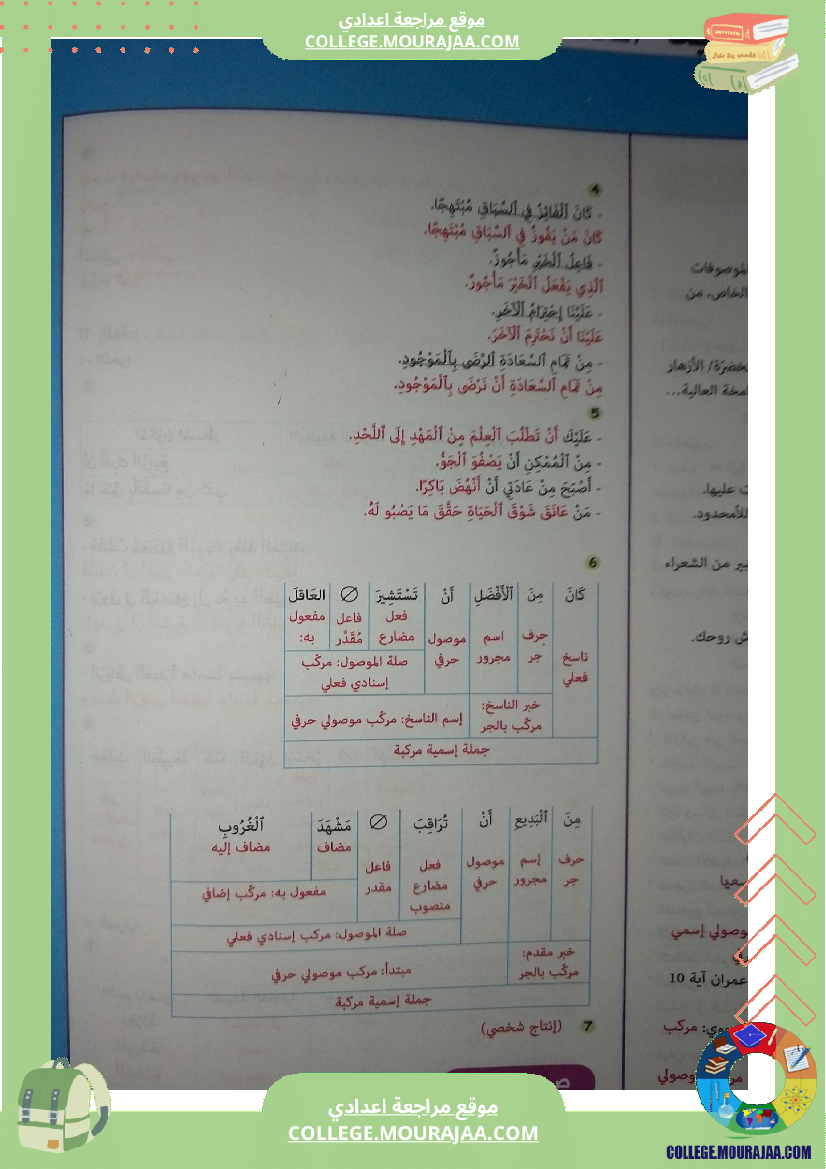 موقع مراجعة اعدادي
COLLEGE.MOURAJAA.COM
4
- كَانَ ٱلْفَائِزُ فِي ٱلسِّبَاقِ مُبْتَهِجًا.
كَانَ مَنْ يَفُوزُ فِي ٱلسِّبَاقِ مُبْتَهِجًا.
- فَاعِلُ ٱلْخَيْرِ مَأْجُورٌ.
ٱلَّذِي يَفْعَلُ ٱلْخَيْرَ مَأْجُورٌ.
- عَلَيْنَا إِحْتِرَامُ ٱلْآخَرِ.
عَلَيْنَا أَنْ نَحْتَرِمَ ٱلْآخَرَ.
- مِنْ تَمَامِ ٱلسَّعَادَةِ ٱلرِّضَى بِٱلْمَوْجُودِ.
مِنْ تَمَامِ ٱلسَّعَادَةِ أَنْ نَرْضَى بِٱلْمَوْجُودِ.
5
- عَلَيْكَ أَنْ تَطْلُبَ ٱلْعِلْمَ مِنْ ٱلْمَهْدِ إِلَى ٱللَّحْدِ.
- مِنْ ٱلْمُمْكِنِ أَنْ يَصْفُوَ ٱلْجَوُّ.
- أَصْبَحَ مِنْ عَادَتِي أَنْ أَنْهَضَ بَاكِرًا.
- مَنْ عَانَقَ شَوْقَ ٱلْحَيَاةِ حَقَّقَ مَا يَصْبُو لَهُ.
6
كَانَ مِنَ ٱلْأَفْضَلِ أَنْ تَسْتَشِيرَ ∅ العَاقِلَ
ناسخ فعلي
حرف جر
اسم مجرور
موصول حرفي
فعل مضارع
فاعل مُقَدَّر
مفعول به:
صلة الموصول: مركّب إسنادي فعلي
خبر الناسخ: مركّب بالجر
إسم الناسخ: مركّب موصولي حرفي
جملة إسمية مركبة
مِنَ ٱلْبَدِيعِ أَنْ تُرَاقِبَ ∅ مَشْهَدَ ٱلْغُرُوبِ
حرف جر
إسم مجرور
موصول حرفي
فعل مضارع منصوب
فاعل مقدر
مضاف
مضاف إليه
مفعول به: مركّب إضافي
صلة الموصول: مركب إسنادي فعلي
خبر مقدم: مركّب بالجر
مبتدأ: مركب موصولي حرفي
جملة إسمية مركبة
7 (إنتاج شخصي)
الخاص، من
الأزهار
العالية...
ت عليها.
من الشعراء
روحك.
إسمي
عمران آية 10
مركب
موقع مراجعة اعدادي
COLLEGE.MOURAJAA.COM
COLLEGE.MOURAJAA.COM